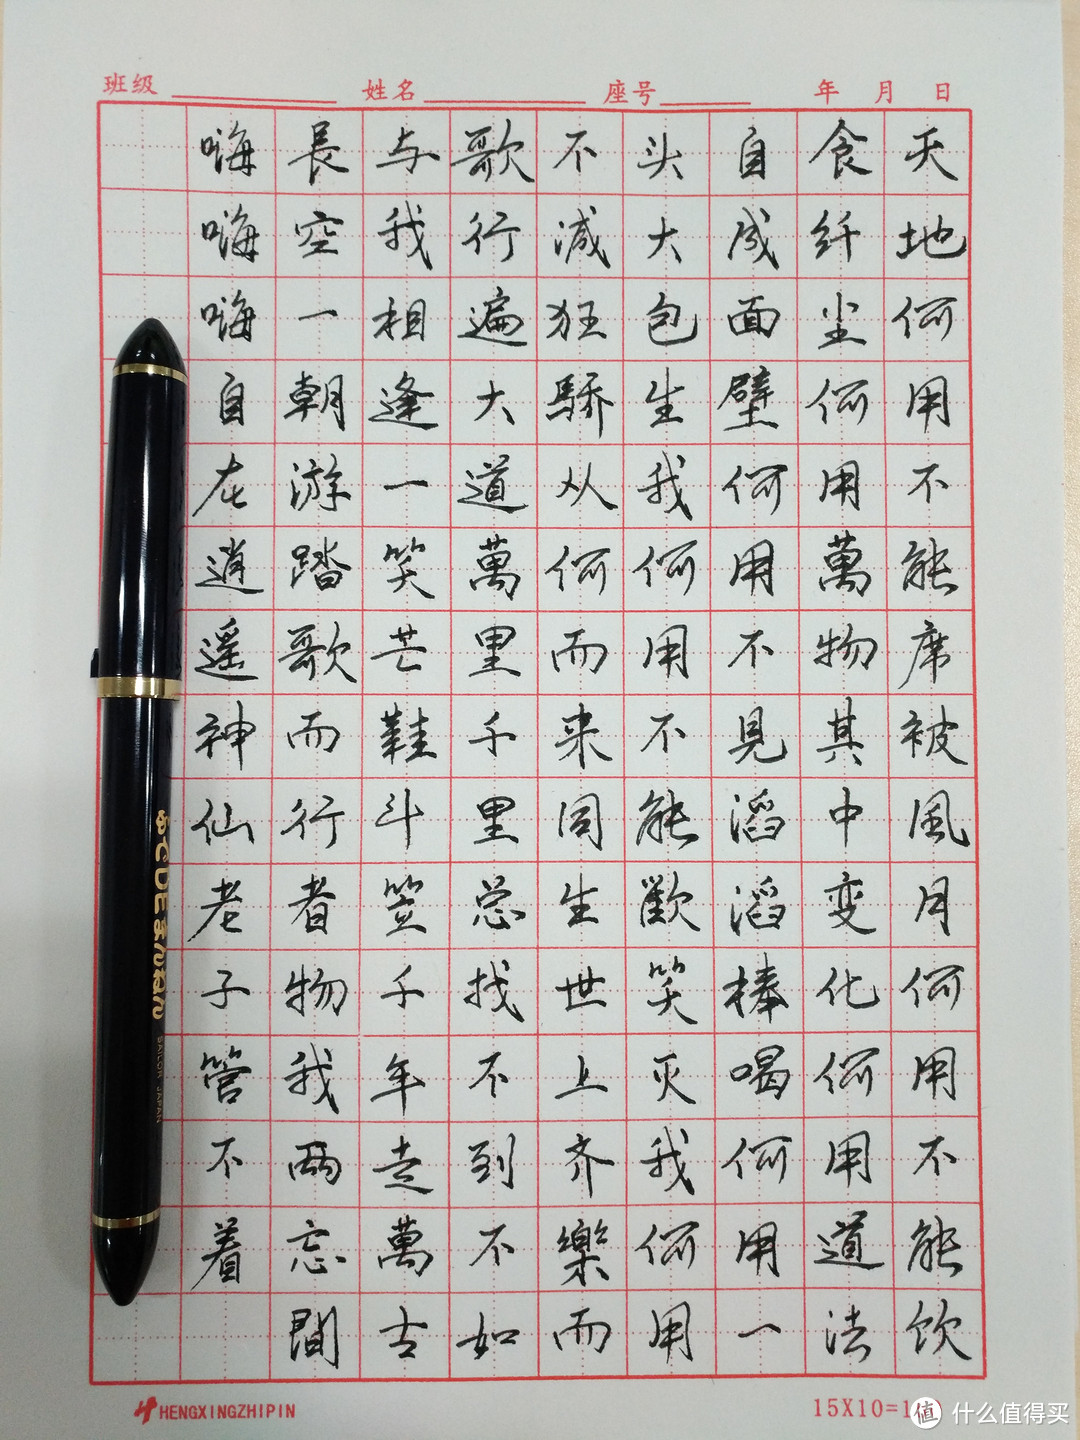 班级 姓名 座号 年 月 日
天地何用不能席被風月何用不能饮
食纤尘何用萬物其中变化何用道法
自成面壁何用不見滔滔棒喝何用一
头大包生我何用不能歡笑灭我何用
不减狂骄从何而来同生世上齐樂而
歌行遍大道萬里千里总找不到不如
与我相逢一笑芒鞋斗笠千年走萬古
長空一朝游踏歌而行者物我两忘間
嗨嗨嗨自在逍遥神仙老子管不着
ふでDEまんねん SAILOR JAPAN
HENGXINGZHIPIN
15X10=1
值 什么值得买